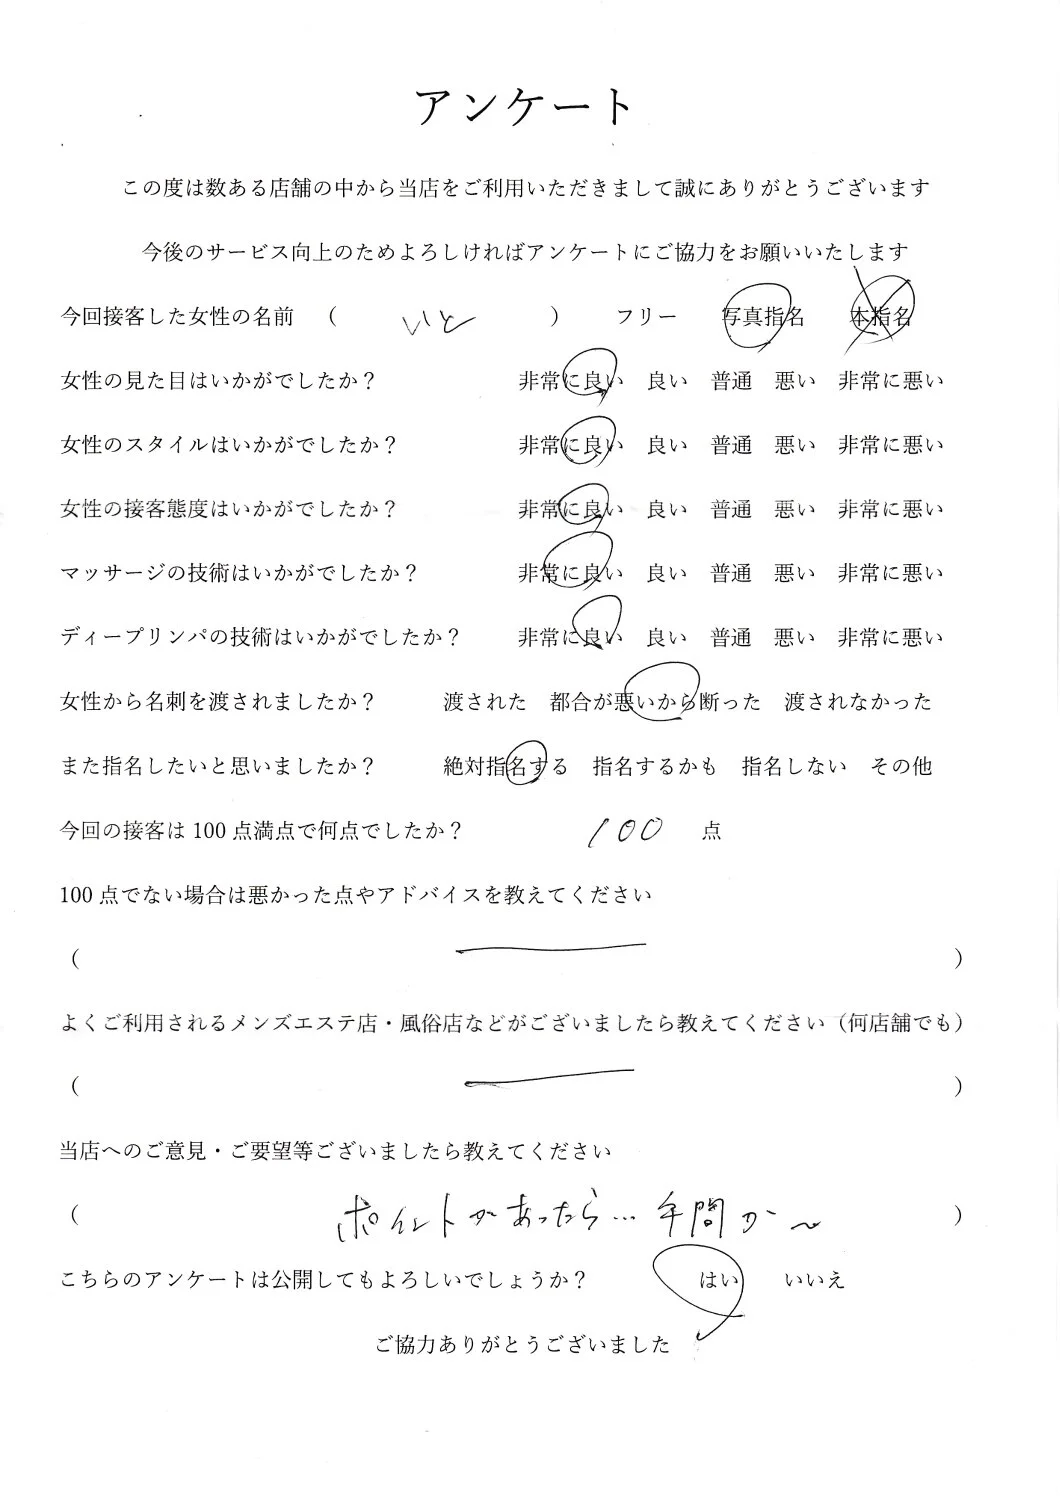 アンケート
この度は数ある店舗の中から当店をご利用いただきまして誠にありがとうございます
今後のサービス向上のためよろしければアンケートにご協力をお願いいたします
今回接客した女性の名前 ( いと ) フリー 写真指名 本指名
女性の見た目はいかがでしたか？ 非常に良い 良い 普通 悪い 非常に悪い
女性のスタイルはいかがでしたか？ 非常に良い 良い 普通 悪い 非常に悪い
女性の接客態度はいかがでしたか？ 非常に良い 良い 普通 悪い 非常に悪い
マッサージの技術はいかがでしたか？ 非常に良い 良い 普通 悪い 非常に悪い
ディープリンパの技術はいかがでしたか？ 非常に良い 良い 普通 悪い 非常に悪い
女性から名刺を渡されましたか？ 渡された 都合が悪いから断った 渡されなかった
また指名したいと思いましたか？ 絶対指名する 指名するかも 指名しない その他
今回の接客は 100 点満点で何点でしたか？ 100 点
100 点でない場合は悪かった点やアドバイスを教えてください
( )
よくご利用されるメンズエステ店・風俗店などがございましたら教えてください（何店舗でも）
( )
当店へのご意見・ご要望等ございましたら教えてください
( ポイントがあったら… )
こちらのアンケートは公開してもよろしいでしょうか？ はい いいえ
ご協力ありがとうございました